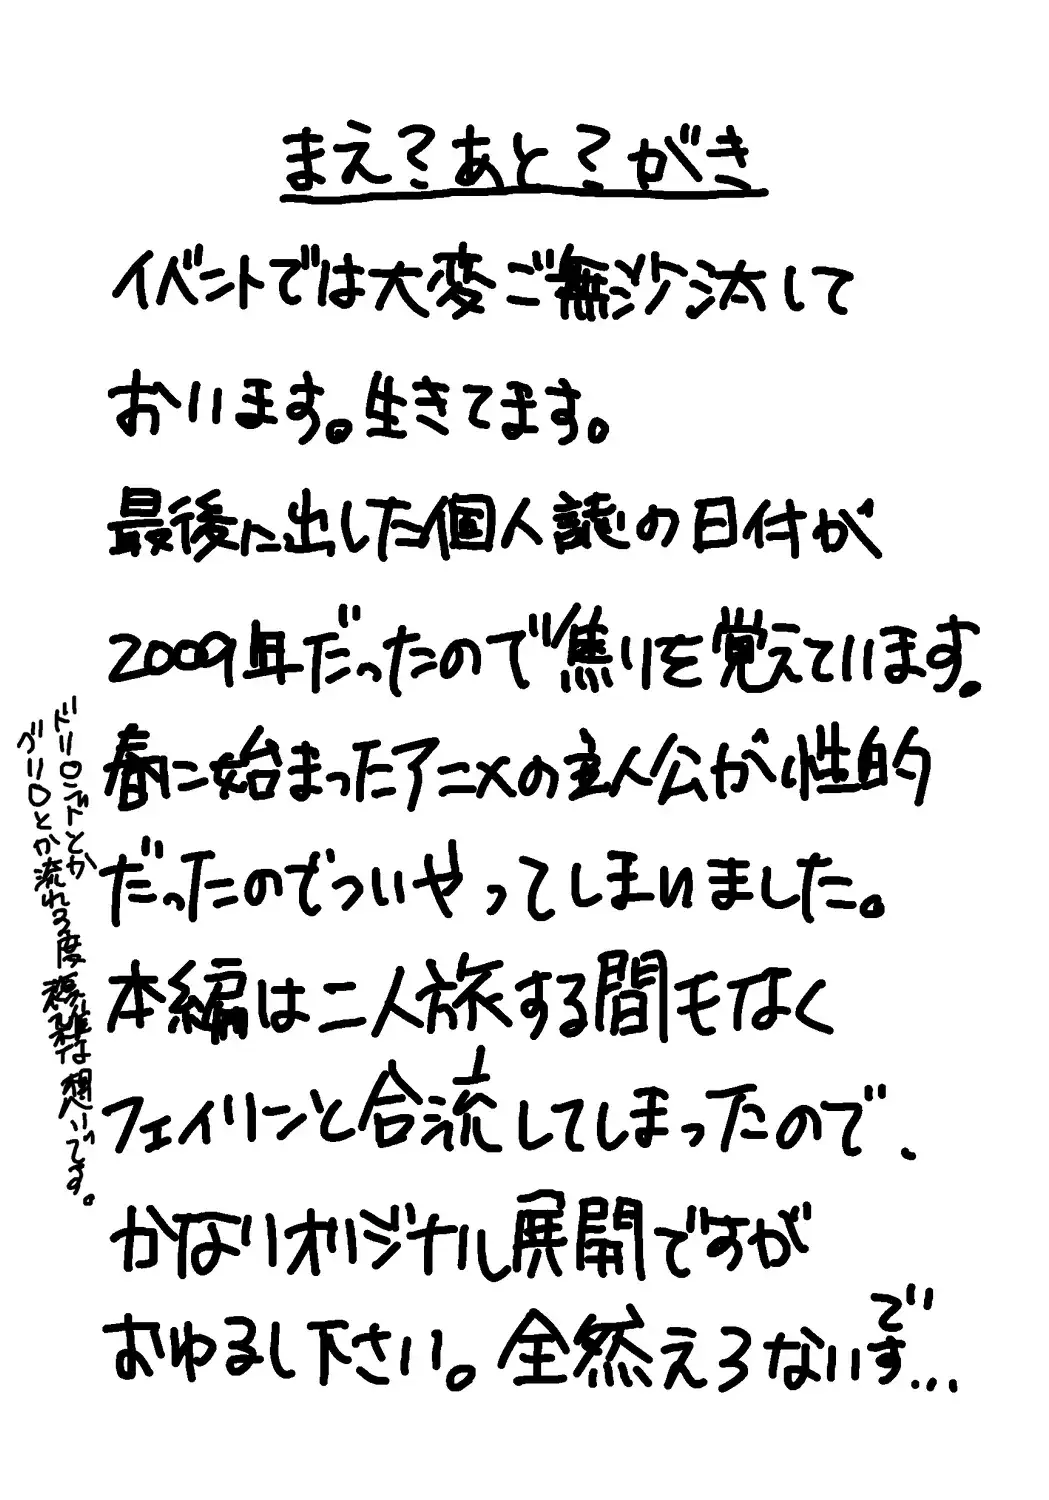 まえ?あと?がき
イベントでは大変ご無沙汰して
おります。生きてます。
最後に出した個人誌の日付が
2009年だったので焦りを覚えています。
春に始まったアニメの主人公が性的
だったのでついやってしまいました。
本編は二人旅する間もなく
フェイリンと合流してしまったので、
かなりオリジナル展開ですが
おゆるし下さい。全然えろないすで…
ドリロンドとか
ゾリロとか流れる度複雑な想いです。